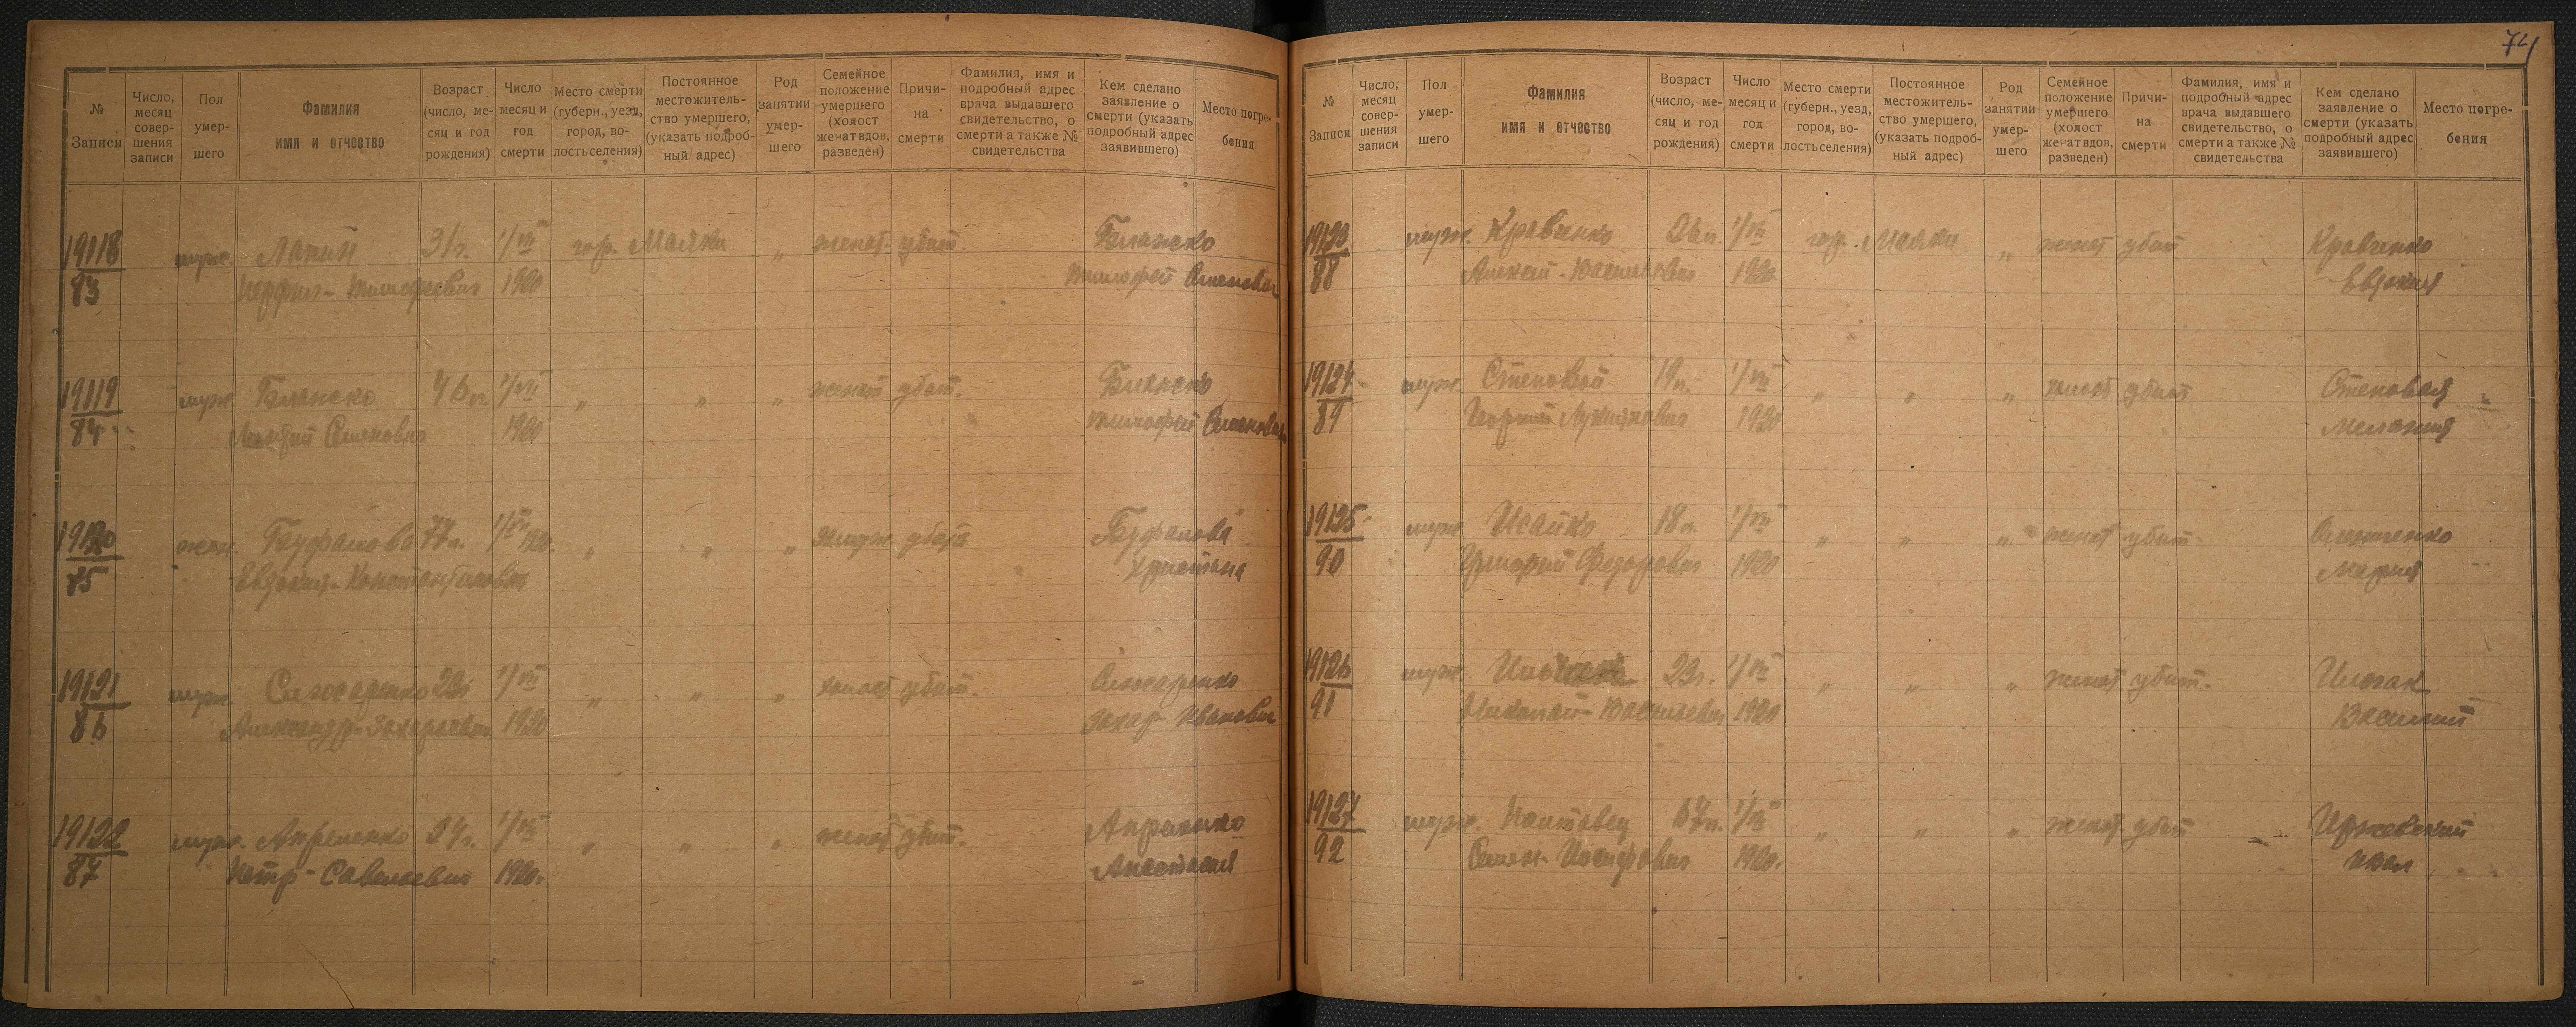 74
№ Записи
Число, месяц совершения записи
Пол умершего
Фамилия имя и отчество
Возраст (число, месяц и год рождения)
Число месяц и год смерти
Место смерти (губерн., уезд, город, волость селения)
Постоянное местожительство умершего, (указать подробный адрес)
Род занятии умершего
Семейное положение умершего (холост женат вдов, разведен)
Причина смерти
Фамилия, имя и подробный адрес врача выдавшего свидетельство, о смерти а также № свидетельства
Кем сделано заявление о смерти (указать подробный адрес заявившего)
Место погребения
19118 муж. Лапин 31г. 1/VII гор. Маяки " женат. убит.
83 Тимофеевич 1920 Тимофей Семенович
19119 муж. 46л. 1/VII " " " женат убит.
84 Семенович 1920 Тимофей Семенович
19120 женс. Буфалова 77л. 1/VII 1920. " " " замуж. убита Буфалова
85 Евдокия - Константиновна Христина
19121 муж. Слюсаренко 22г 1/VII " " " холост убит. Слюсаренко
86 Александр - Захарьевич 1920 Захар Иванович
19122 муж. 1/VII " " " женат убит.
87 Петр - Савельевич 1920г. Анастасия
№ Записи
Число, месяц совершения записи
Пол умершего
Фамилия имя и отчество
Возраст (число, месяц и год рождения)
Число месяц и год смерти
Место смерти (губерн., уезд, город, волость селения)
Постоянное местожительство умершего, (указать подробный адрес)
Род занятии умершего
Семейное положение умершего (холост женат вдов, разведен)
Причина смерти
Фамилия, имя и подробный адрес врача выдавшего свидетельство, о смерти а также № свидетельства
Кем сделано заявление о смерти (указать подробный адрес заявившего)
Место погребения
19123 муж. Кравченко 26л. 1/VII гор. Маяки " женат убит Кравченко
88 Алексей - Васильевич 1920 Евдокия
19124 муж. Степовой 19л. 1/VII " " " холост убит Степовая
89 Георгий 1920 Мелания
19125 муж. Исайко 18л. 1/VII " " " женат убит.
90 Григорий Федорович 1920 Мария
19126 муж. 29г. 1/VII " " " женат убит.
91 Николай - Васильевич 1920 Василий
19127 муж. 67л. 1/VII " " " женат убит
92 Семен - Иосифович 1920. Иван